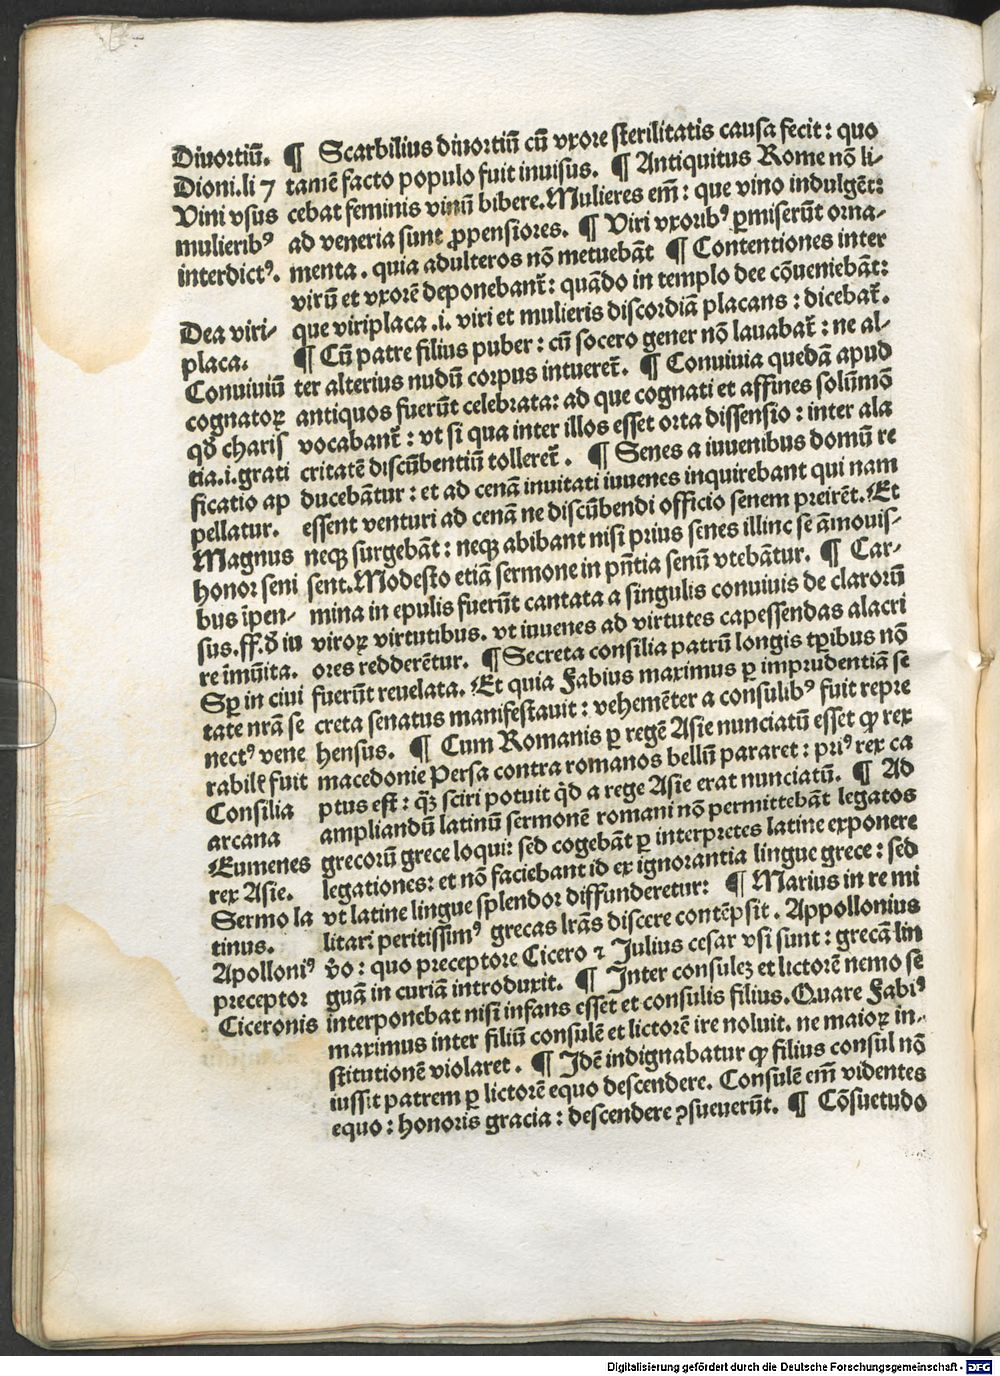 Diuortiū.
Dioni.li 7
Vini vsus
mulieribꝰ
interdictꝰ.
Dea viri-
placa.
Conuiuiū
cognatoꝝ
qđ charis
tia.i.grati
ficatio ap
pellatur.
Magnus
honor seni
bus īpen-
sus.ff.ꝺ iu
re īmūita.
Sꝑ in ciui
tate nrā se
nectꝰ vene
rabile fuit
Consilia
arcana
Eumenes
rex Asie.
Sermo la
tinus.
Apolloniꝰ
preceptor
Ciceronis
¶ Scarbilius diuortiū cū vxore sterilitatis causa fecit: quo
tamē facto populo fuit inuisus. ¶ Antiquitus Rome nō li-
cebat feminis vinū bibere. Mulieres em̄: que vino indulgēt:
ad veneria sunt ꝓpensiores. ¶ Viri vxoribꝰ ꝑmiserūt orna-
menta. quia adulteros nō metuebāt ¶ Contentiones inter
virū et vxorē deponebant̄: quādo in templo dee cōueniebāt:
que viriplaca .i. viri et mulieris discordiā placans: dicebat̄.
¶ Cū patre filius puber: cū socero gener nō lauabat̄: ne al-
ter alterius nudū corpus intueret̄. ¶ Conuiuia quedā apud
antiquos fuerūt celebrata: ad que cognati et affines solūmō
vocabant̄: vt si qua inter illos esset orta dissensio: inter ala
critatē discūbentiū tolleret̄. ¶ Senes a iuuenibus domū re
ducebātur: et ad cenā inuitati iuuenes inquirebant qui nam
essent venturi ad cenā ne discūbendi officio senem preirēt. Et
neqꝫ surgebāt: neqꝫ abibant nisi prius senes illinc se āmouis-
sent. Modesto etiā sermone in pn̄tia senū vtebātur. ¶ Car-
mina in epulis fuerūt cantata a singulis conuiuis de clarorū
viroꝝ virtutibus. vt iuuenes ad virtutes capessendas alacri
ores redderētur. ¶ Secreta consilia patrū longis tꝑibus nō
fuerūt reuelata. Et quia Fabius maximus ꝑ imprudentiā se
creta senatus manifestauit: vehemēter a consulibꝰ fuit repre
hensus. ¶ Cum Romanis ꝑ regē Asie nunciatū esset ꝙ rex
macedonie Persa contra romanos bellū pararet: priꝰ rex ca
ptus est: qꝫ̄ sciri potuit qd̄ a rege Asie erat nunciatū. ¶ Ad
ampliandū latinū sermonē romani nō permittebāt legatos
grecorū grece loqui: sed cogebāt ꝑ interpretes latine exponere
legationes: et nō faciebant id ex ignorantia lingue grece: sed
vt latine lingue splendor diffunderetur: ¶ Marius in re mi
litari peritissimꝰ grecas lrās discere contēpsit. Appollonius
v̄o: quo preceptore Cicero ⁊ Julius cesar vsi sunt: grecā lin
guā in curiā introduxit. ¶ Inter consuleꝫ et lictorē nemo se
interponebat nisi infans esset et consulis filius. Quare Fabiꝰ
maximus inter filiū consulē et lictorē ire noluit. ne maioꝝ in-
stitutionē violaret. ¶ Idē indignabatur ꝙ filius consul nō
iussit patrem ꝑ lictorē equo descendere. Consulē em̄ videntes
equo: honoris gracia: descendere ꝯsueuerūt. ¶ Cōsuetudo
Digitalisierung gefördert durch die Deutsche Forschungsgemeinschaft - DFG